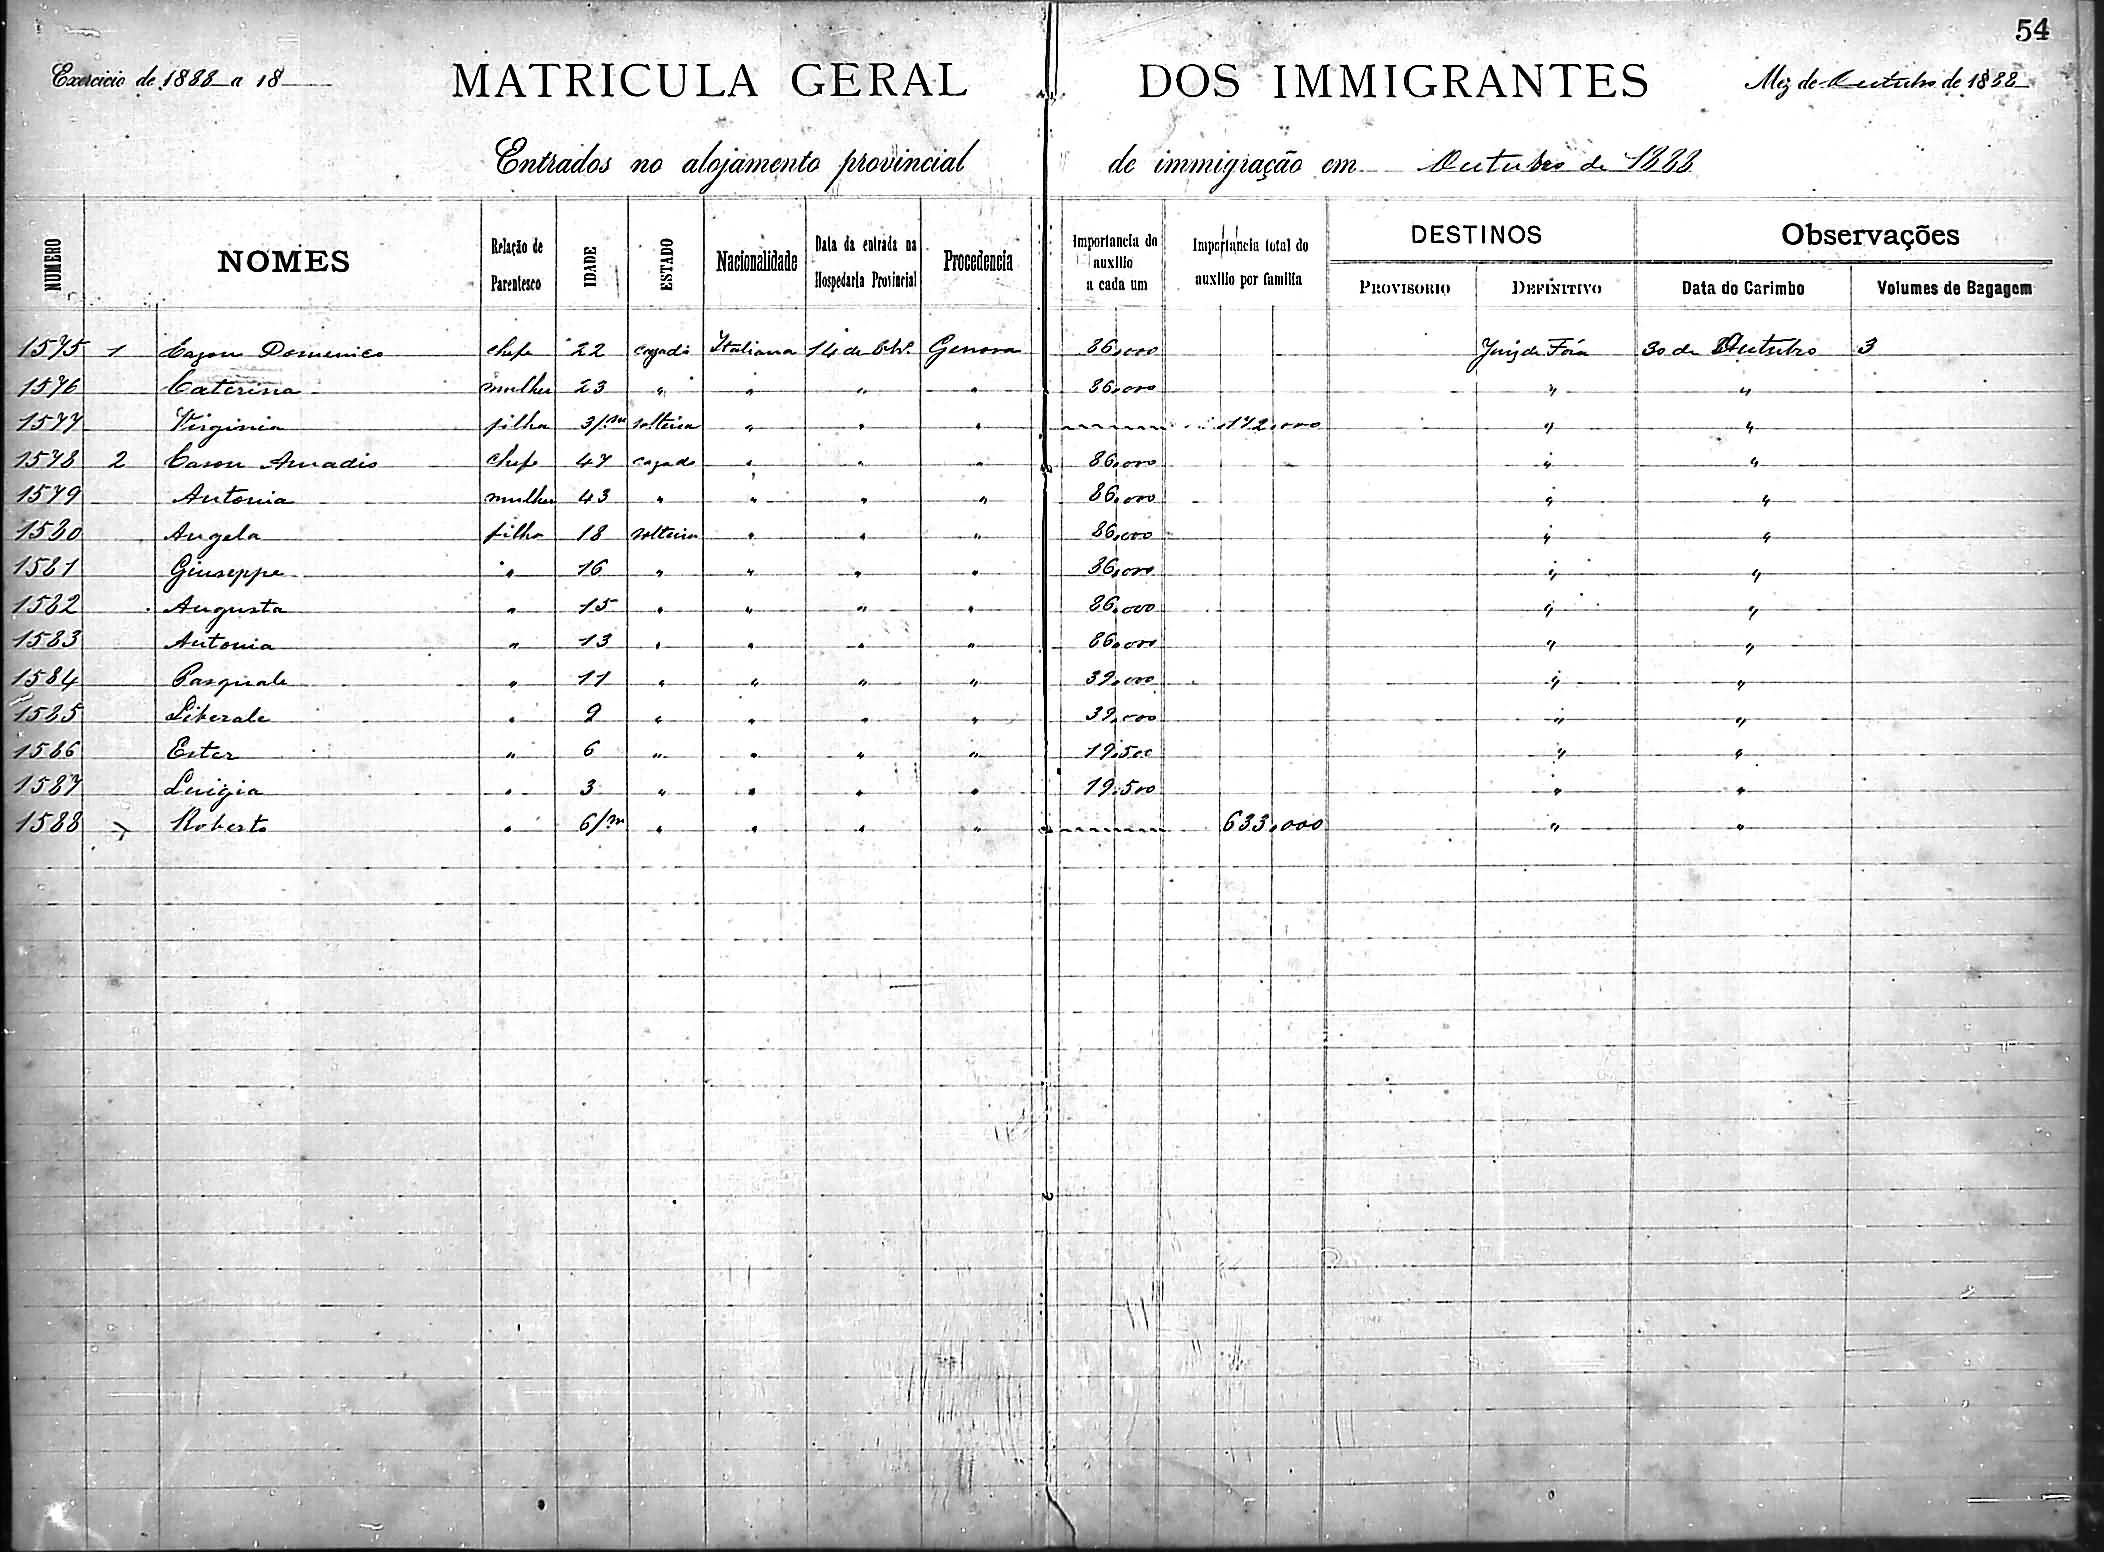 54
Exercicio de 1888 a 18
MATRICULA GERAL DOS IMMIGRANTES
Mez de Outubro de 1888
Entrados no alojamento provincial de immigração em Outubro de 1888
NUMERO NOMES Relação de Parentesco IDADE ESTADO Nacionalidade Data da entrada na Hospedaria Provincial Procedencia Importancia do auxilio a cada um Importancia total do auxilio por familia DESTINOS Observações
PROVISORIO DEFINITIVO Data do Carimbo Volumes de Bagagem
1575 1 Cazon Domenico chefe 22 cazado Italiana 14 de Genova 86,000 Juiz de Fóra 30 de Outubro 3
1576 Caterina mulher 23 " " " " 86,000 " "
1577 Virginia filha 3/m solteira " " " 172,000 " "
1578 2 Cason Amadio chefe 47 cazado " " " 86,000 " "
1579 Antonia mulher 43 " " " " 86,000 " "
1580 Angela filha 18 solteira " " " 86,000 " "
1581 Giuseppe " 16 " " " " 86,000 " "
1582 Augusta " 15 " " " " 86,000 " "
1583 Antonia " 13 " " " " 86,000 " "
1584 Pasquale " 11 " " " " 39,000 " "
1585 Liberale " 9 " " " " 39,000 " "
1586 Ester " 6 " " " " 19,500 " "
1587 Luigia " 3 " " " " 19,500 " "
1588 Roberto " 6/m " " " " 633,000 " "